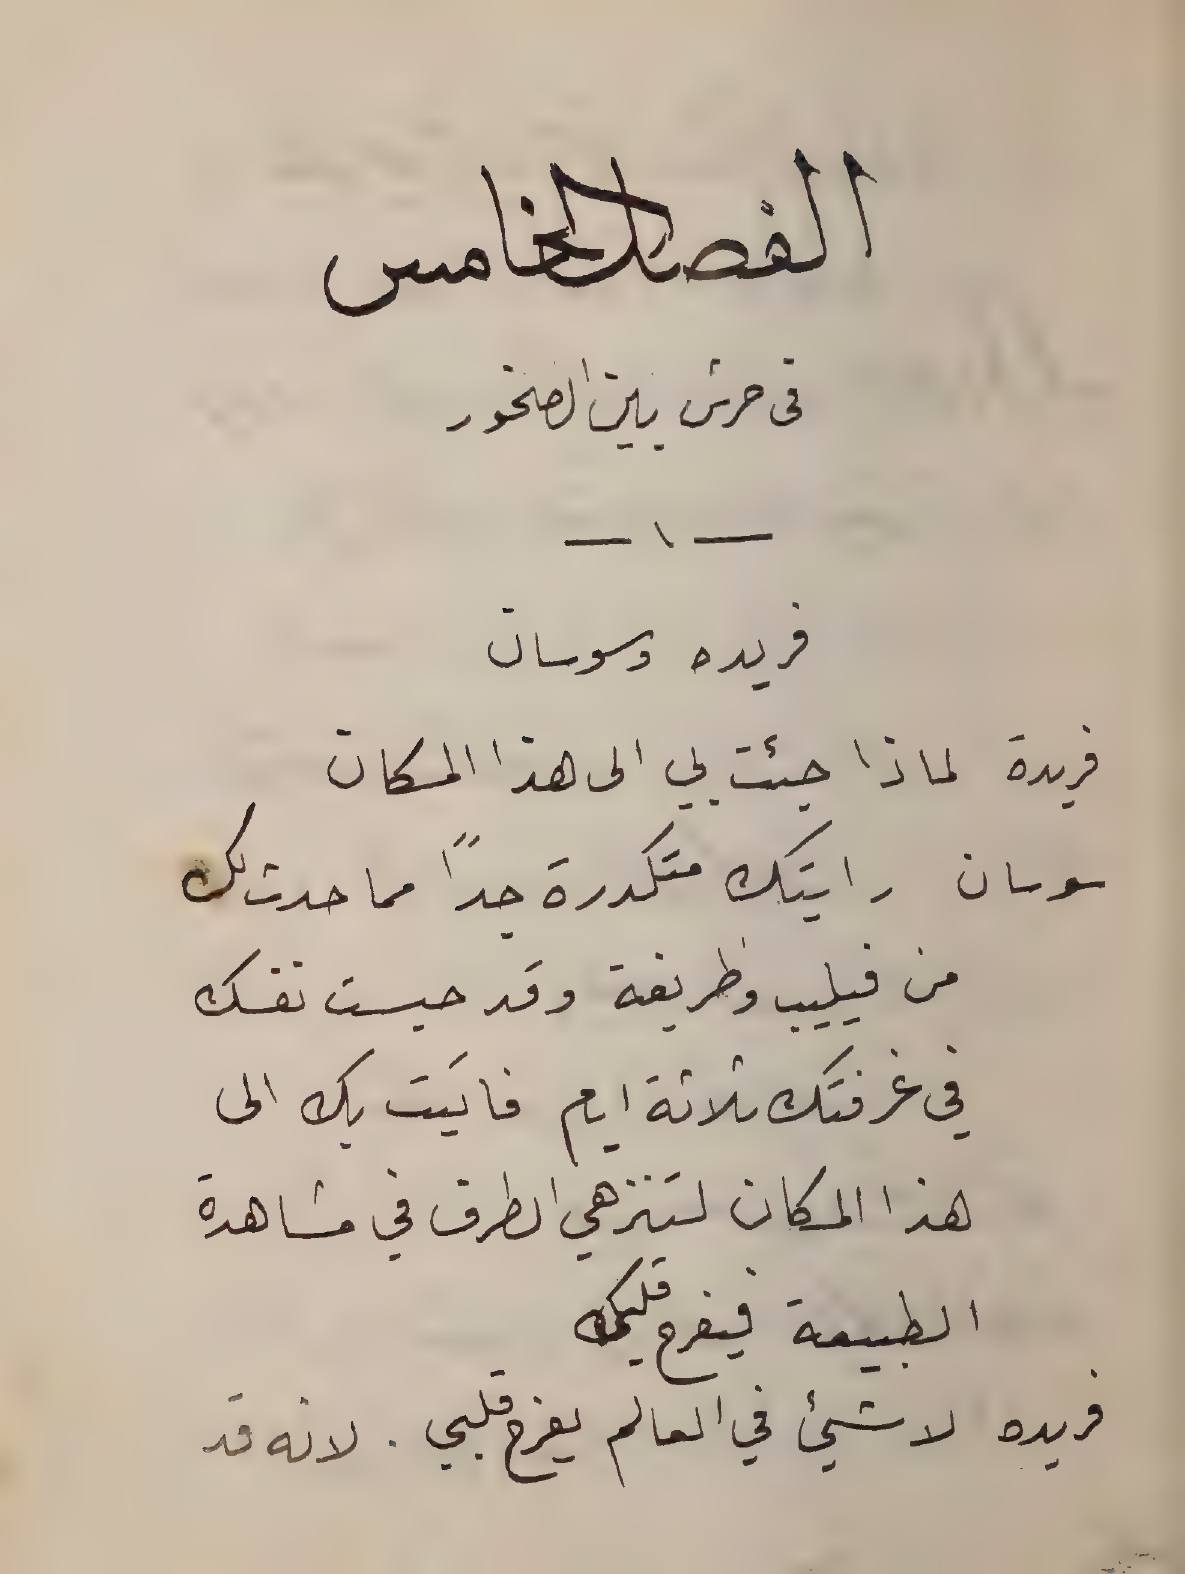 الفصل الخامس
في حرش بين الصخور
— ١ —
فريده وسوسان
فريدة لماذا جئت بي الى هذا المكان
سوسان رايتك متكدرة جداً مما حدث لك
من فيليب وظريفة وقد حبست نفسك
في غرفتك ثلاثة ايام فاتيت بك الى
هذا المكان لتنزهي الطرف في مشاهدة
الطبيعة فينفرج قلبك
فريده لا شيئ في العالم يفرج قلبي . لانه قد